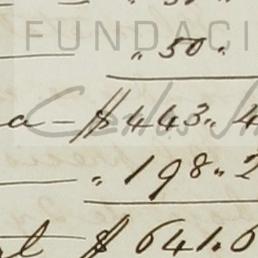 FUNDACI
„ 50 „
a — $ 443 „ 4
„ 198 „ 2
$ 641 „ 6